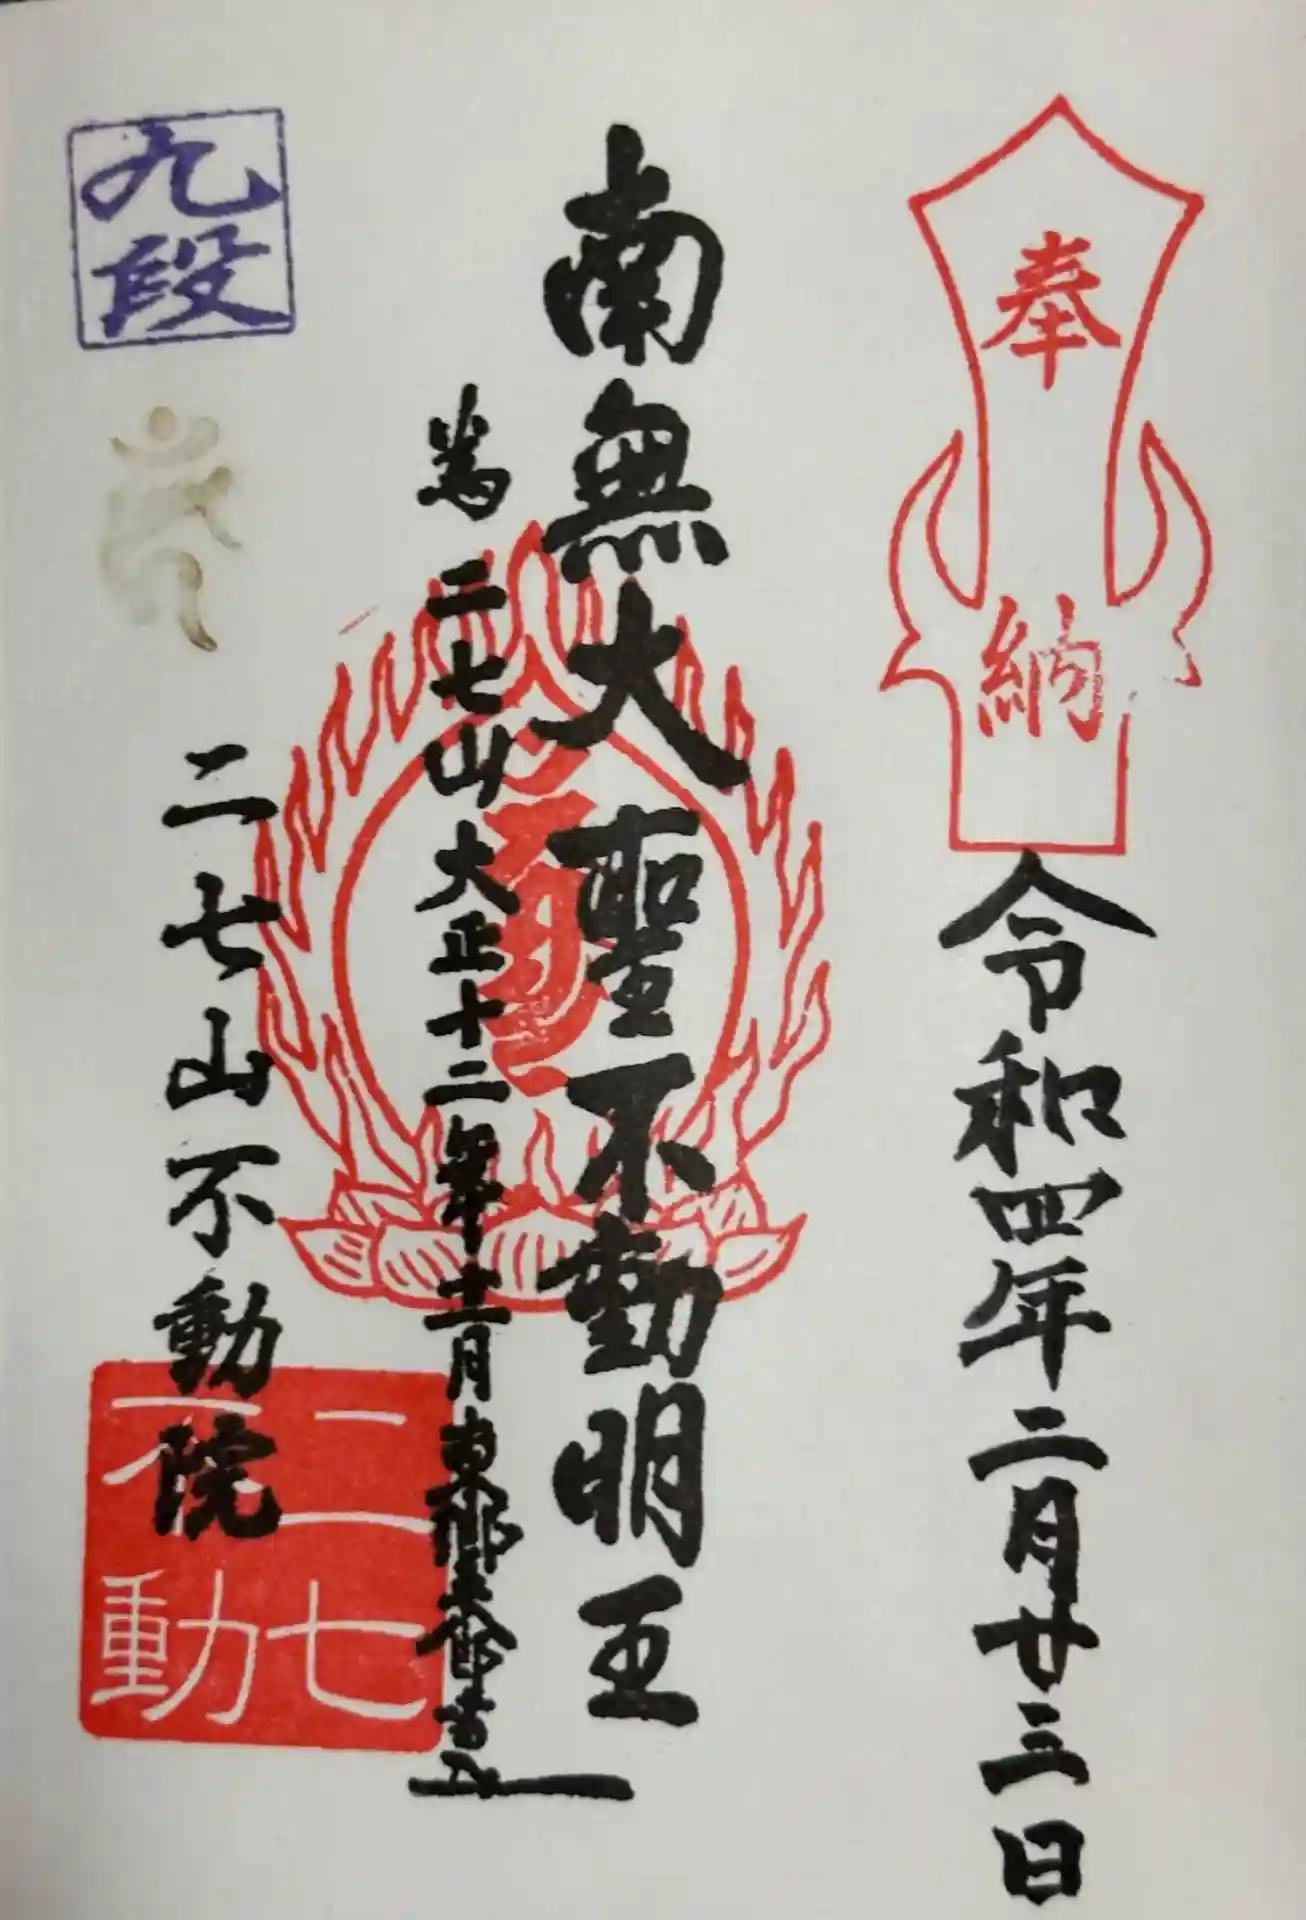 奉納
令和四年二月廿三日
南無大聖不動明王
為二七山大正十二年十二月
二七山不動院
九段
二七不動